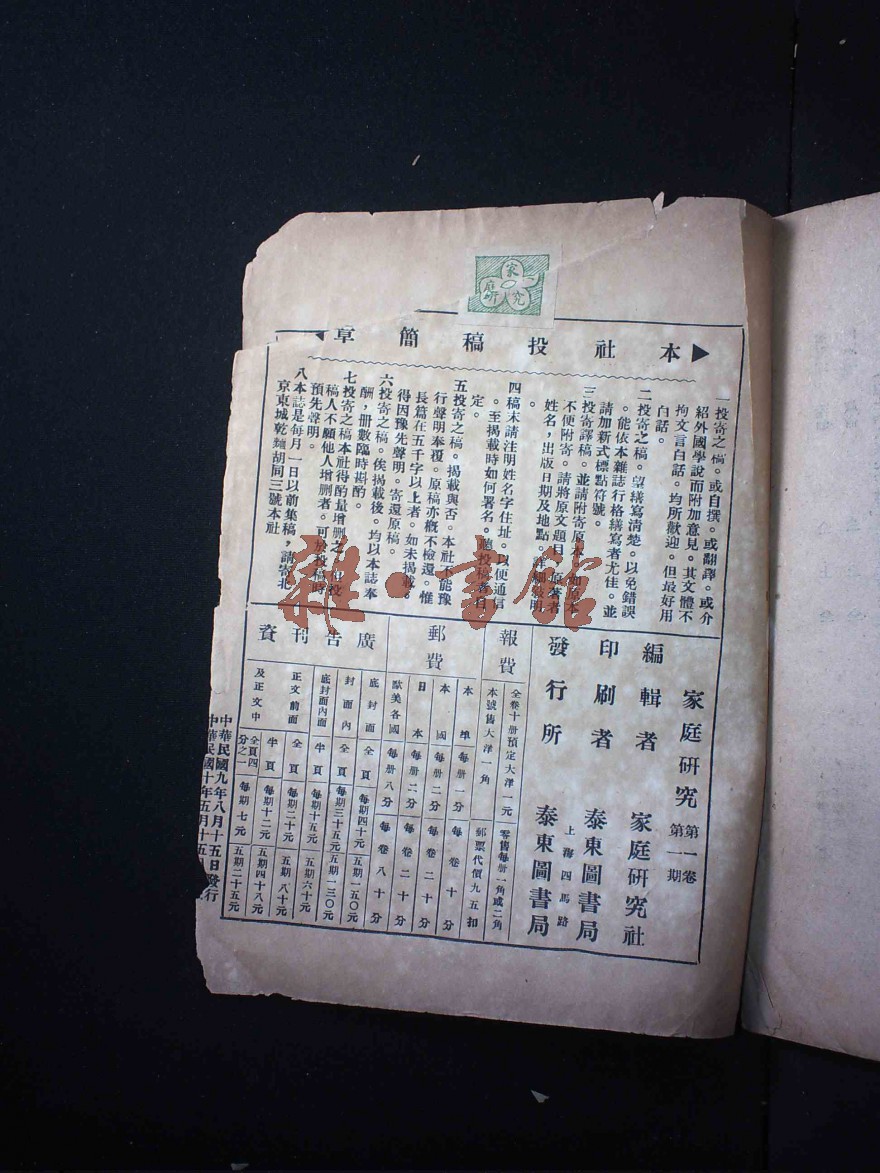 家庭研究
本社投稿簡章
一投寄之稿。或自撰。或翻譯。或介
紹外國學說而附加意見。其文體不
拘文言白話。均所歡迎。但最好用
白話。
二投寄之稿。望繕寫清楚。以免錯誤
。能依本雜誌行格繕寫者尤佳。並
請加新式標點符號。
三投寄譯稿。並請附寄原本。如原本
不便附寄。請將原文題目。原著者
姓名,出版日期及地點。詳細敘明
。
四稿末請注明姓名字住址。以便通信
。至揭載時如何署名。聽投稿者自
定。
五投寄之稿。揭載與否。本社不能豫
行聲明奉覆。原稿亦概不檢還。惟
長篇在五千字以上者。如未揭載。
得因豫先聲明。寄還原稿。
六投寄之稿。俟揭載後。均以本誌奉
酬,冊數臨時斟酌。
七投寄之稿本社得酌量增删之。但投
稿人不願他人增删者。可於投稿時
預先聲明。
八本誌是每月一日以前集稿,請寄北
京東城乾麵胡同三號本社
家庭研究 第一卷 第一期
編輯者 家庭研究社
印刷者 泰東圖書局
上海四馬路
發行所 泰東圖書局
報費
全卷十册預定大洋一元 零售每册一角或二角
本號售大洋一角 郵票代價九五扣
郵費
本埠每册一分 每卷十分
本國每册二分 每卷二十分
日本每册二分 每卷二十分
歐美各國每册八分 每卷八十分
廣告刊資
底封面 全頁 每期四十元 五期一五〇元
封面內 全頁 每期三十五元 五期一三〇元
底封面內面 半頁 每期十五元 五期六十元
正文前面 全頁 每期二十元 五期八十元
半頁 每期十二元 五期四十八元
及正文中 全頁四分之一 每期七元 五期二十五元
中華民國九年八月十五日發行
中華民國十年五月十五
雜·書館